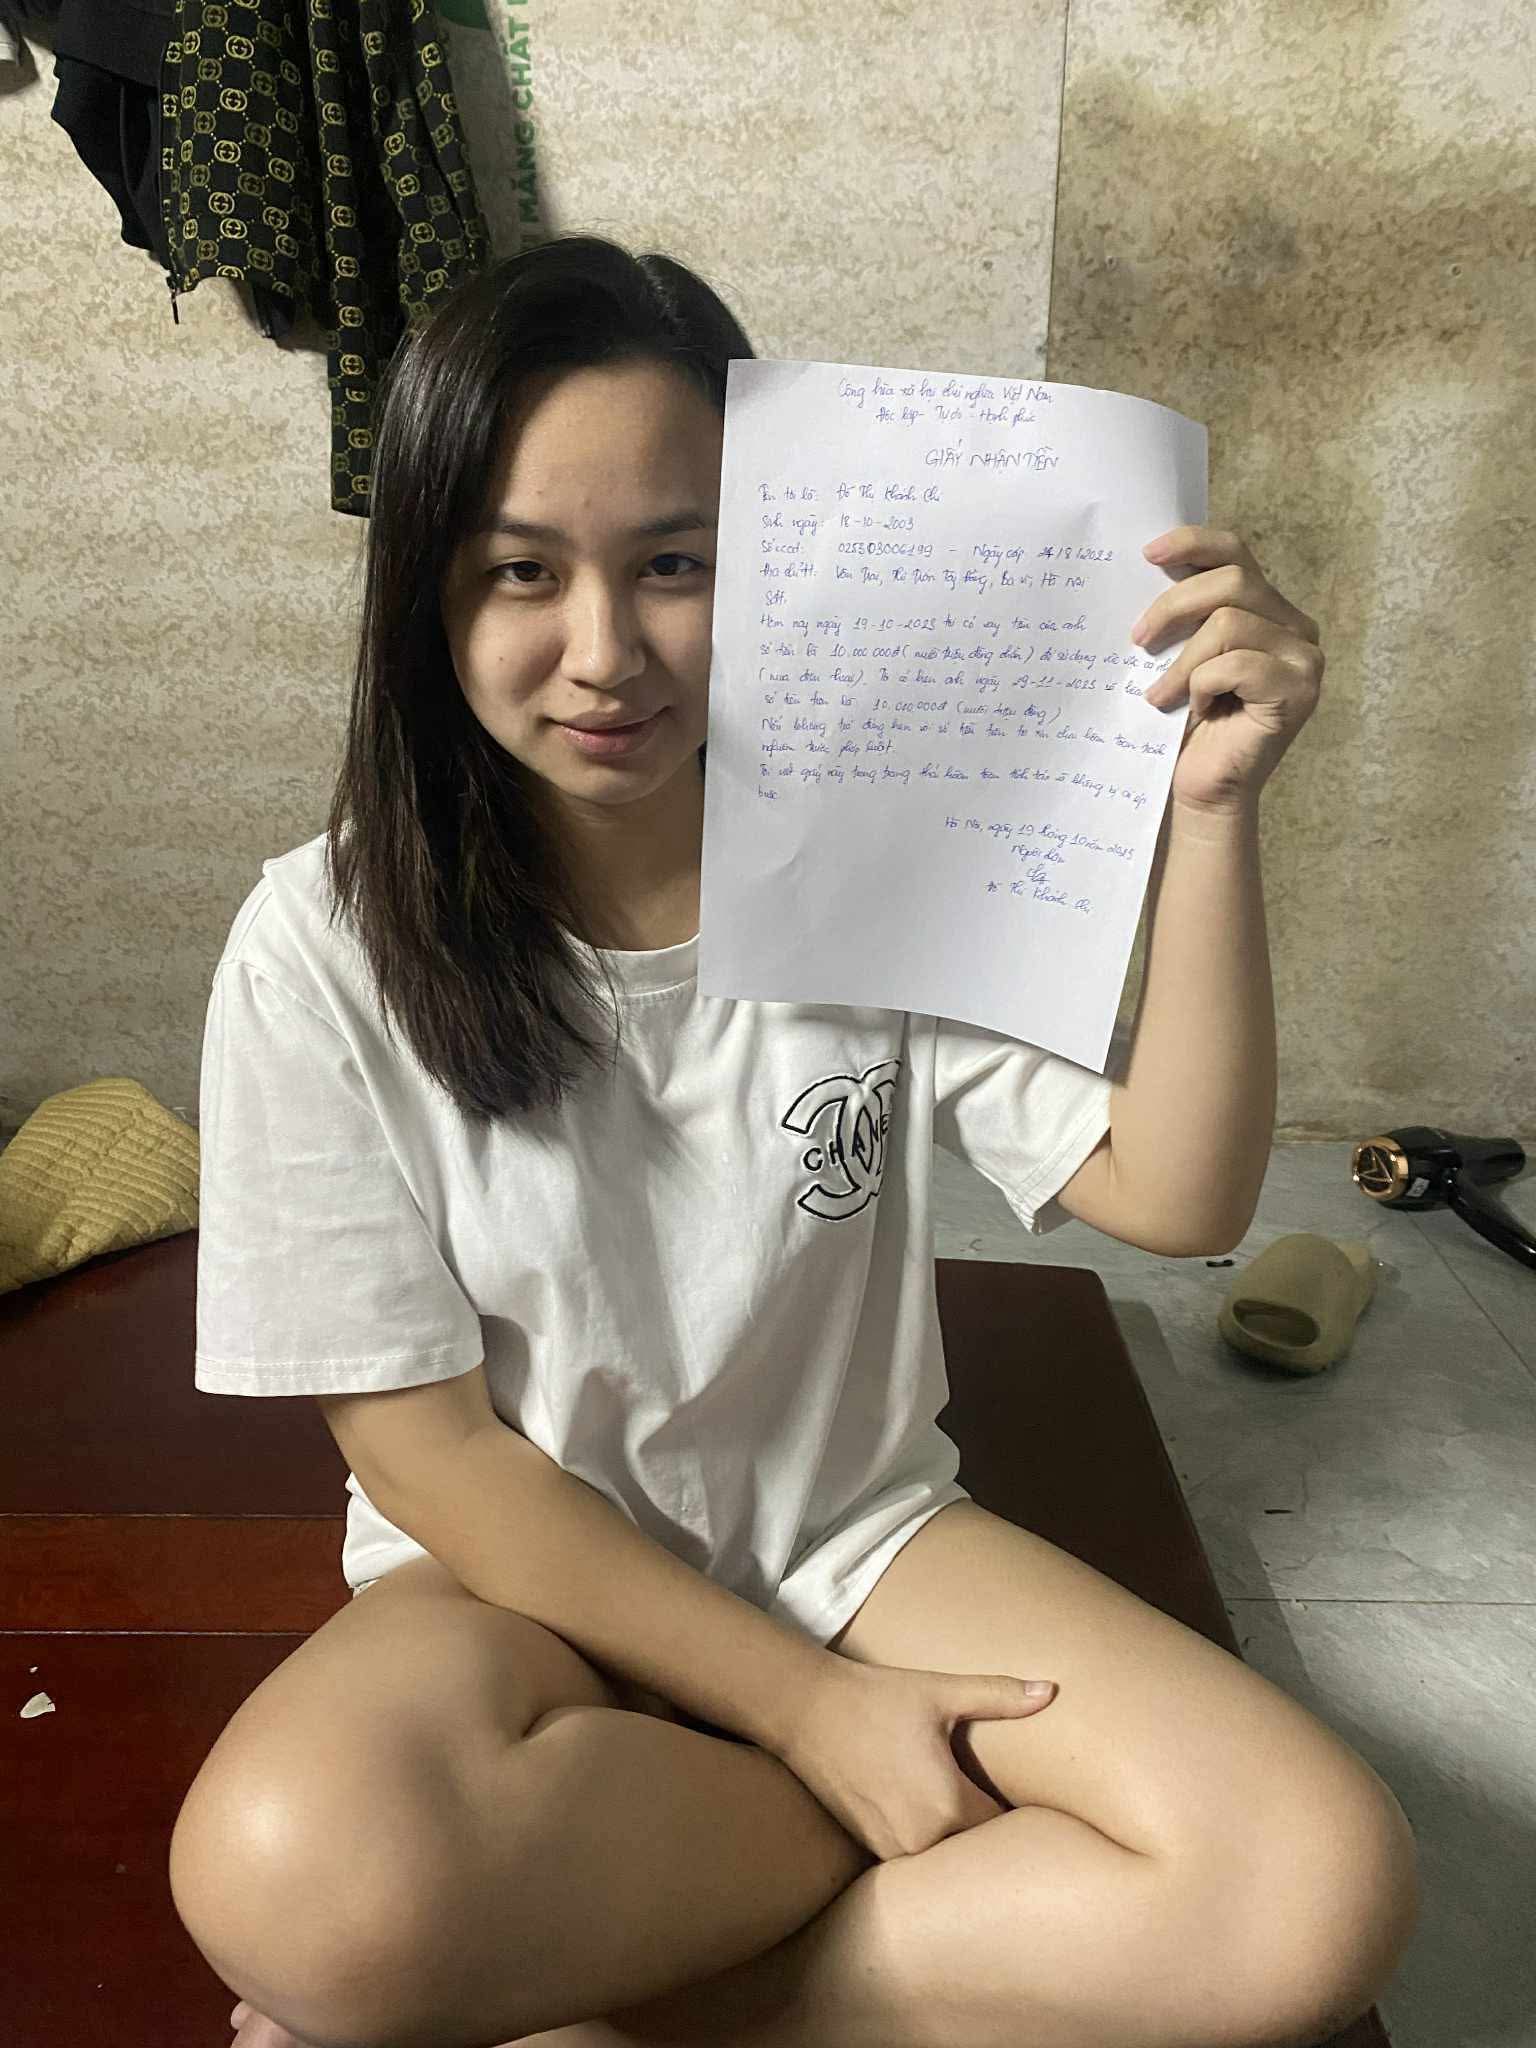 MĂNG CHẤT
Cộng hòa xã hội chủ nghĩa Việt Nam
Độc lập - Tự do - Hạnh phúc
GIẤY NHẬN TIỀN
Tên tôi là: Đỗ Thị Khánh Chi
Sinh ngày: 18-10-2003
Số cccd: 025303006199 - Ngày cấp 24/8/2022
Địa chỉ: Vân Trai, Thị Trấn Tây Đằng, Ba Vì, Hà Nội
Sđt:
Hôm nay ngày 19-10-2023 tôi có vay tiền của anh
số tiền là 10.000.000đ (mười triệu đồng chẵn) để sử dụng việc
(mua điện thoại). Tôi có hẹn anh ngày 29-11-2023 sẽ
số tiền trên là 10.000.000đ (mười triệu đồng)
Nếu không trả đúng hẹn với số tiền trên tôi xin chịu hoàn toàn trách
nghiệm trước pháp luật.
Tôi viết giấy này trong trạng thái hoàn toàn tỉnh táo và không bị ai ép
buộc.
Hà Nội, ngày 19 tháng 10 năm 2023
Người
Đỗ Thị Khánh Chi
CHANE